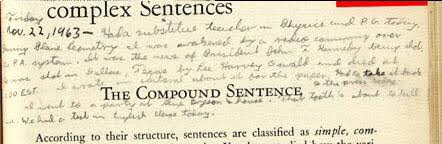 complex Sentences
Friday
Nov. 22, 1963 — Had a substitute teacher in Physics and P.G. today.
During Plane Geometry I was awakened by a radio coming over
P.A. system. It was the news of President John F. Kennedy being shot
in Dallas, Texas by Lee Harvey Oswald and died at
:00 EST. I wrote about it for the paper. Had to take it back
to the press
THE COMPOUND SENTENCE
I went to a party at house. That tooth's about to kill
me. We had a test in English class today.
According to their structure, sentences are classified as simple, com-